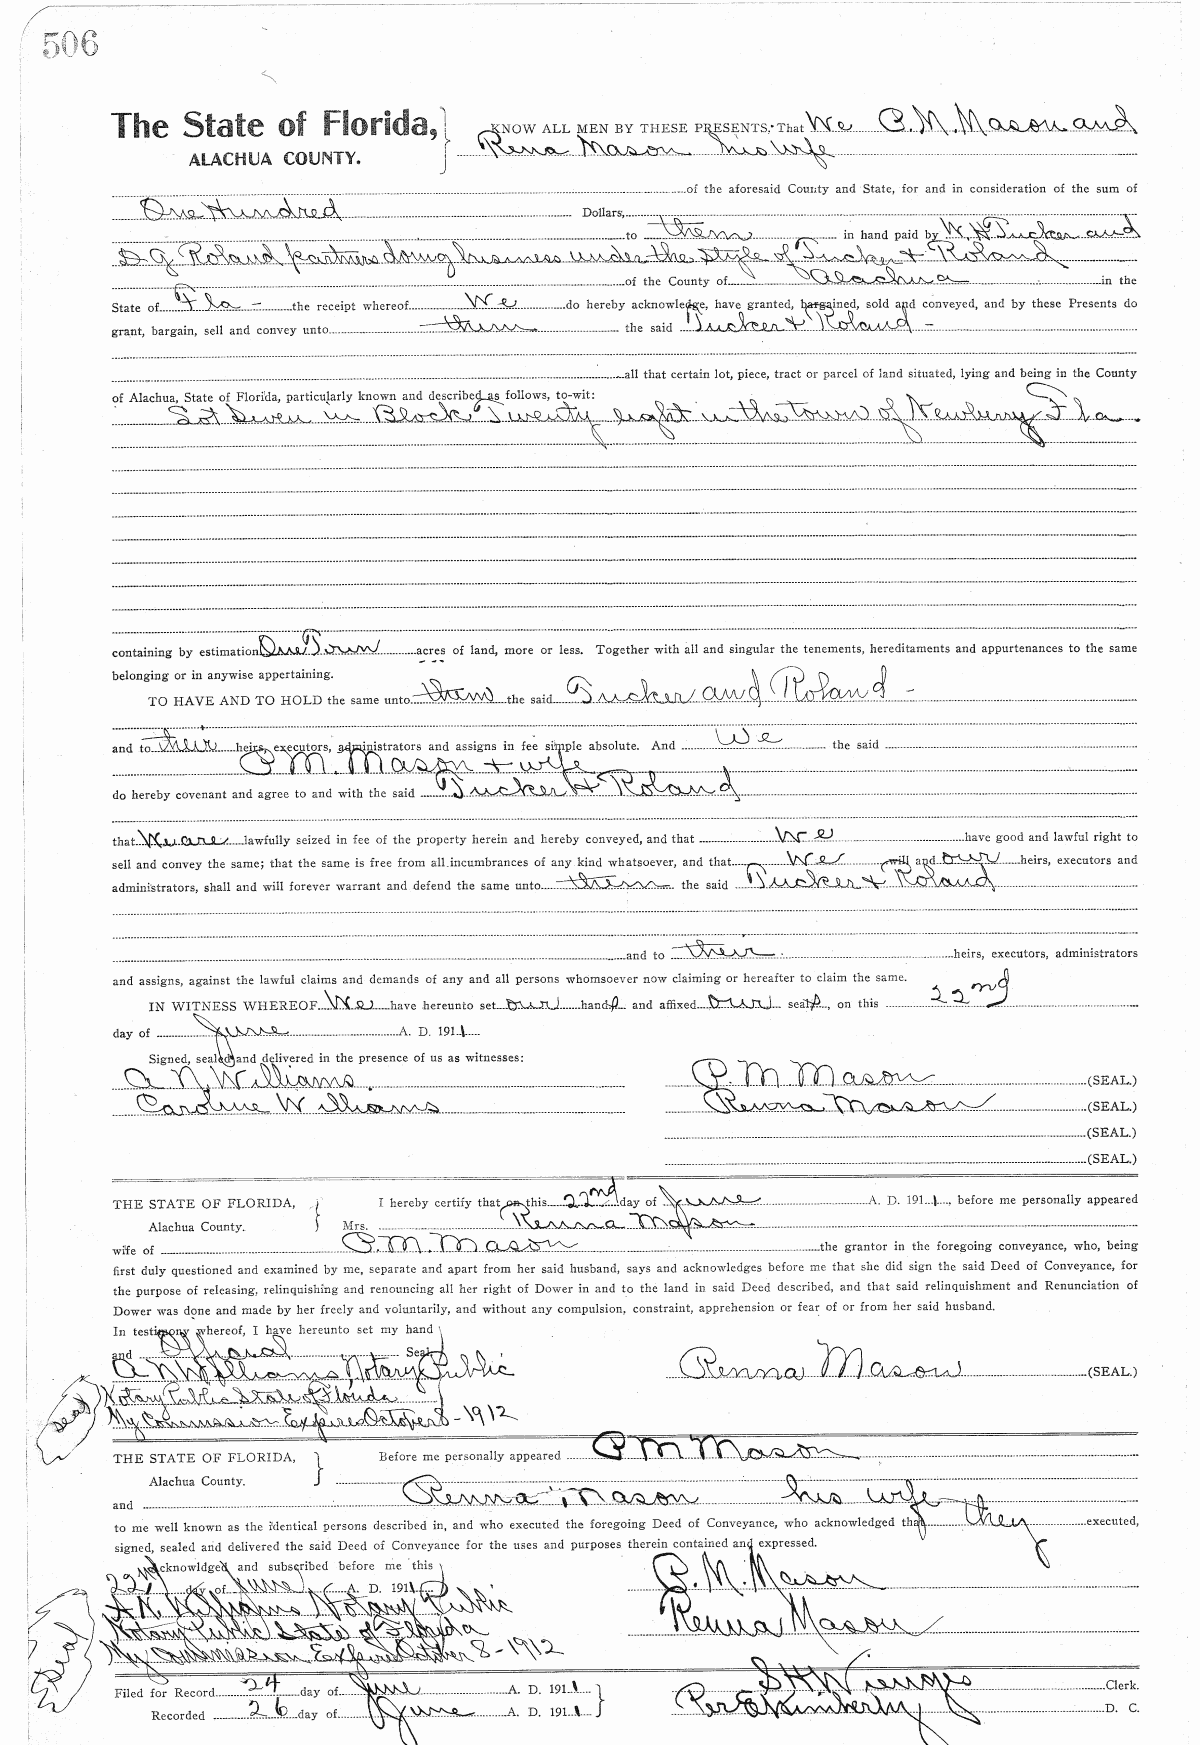 506
The State of Florida,
ALACHUA COUNTY.
KNOW ALL MEN BY THESE PRESENTS, That We P. M. Mason and
Rena Mason his wife
of the aforesaid County and State, for and in consideration of the sum of
One Hundred Dollars,
to them in hand paid by W. H. Tucker and
D G Roland partners doing business under the style of Tucker & Roland
of the County of Alachua in the
State of Fla - the receipt whereof We do hereby acknowledge, have granted, bargained, sold and conveyed, and by these Presents do
grant, bargain, sell and convey unto them the said Tucker & Roland -
all that certain lot, piece, tract or parcel of land situated, lying and being in the County
of Alachua, State of Florida, particularly known and described as follows, to-wit:
Lot Seven in Block Twenty eight in the town of Newberry Fla.
containing by estimation One Town acres of land, more or less. Together with all and singular the tenements, hereditaments and appurtenances to the same
belonging or in anywise appertaining.
TO HAVE AND TO HOLD the same unto them the said Tucker and Roland -
and to their heirs, executors, administrators and assigns in fee simple absolute. And We the said
P M. Mason + wife
do hereby covenant and agree to and with the said Tucker & Roland
that We are lawfully seized in fee of the property herein and hereby conveyed, and that we have good and lawful right to
sell and convey the same; that the same is free from all incumbrances of any kind whatsoever, and that We will and our heirs, executors and
administrators, shall and will forever warrant and defend the same unto them the said Tucker & Roland
and to their heirs, executors, administrators
and assigns, against the lawful claims and demands of any and all persons whomsoever now claiming or hereafter to claim the same.
IN WITNESS WHEREOF We have hereunto set our hands and affixed our seals, on this 22nd
day of June A. D. 1911
Signed, sealed and delivered in the presence of us as witnesses:
A N. Williams. P. M Mason (SEAL.)
Caroline Williams Renna Mason (SEAL.)
(SEAL.)
(SEAL.)
THE STATE OF FLORIDA,
Alachua County.
I hereby certify that on this 22nd day of June A. D. 1911, before me personally appeared
Mrs. Renna Mason
wife of P. M. Mason the grantor in the foregoing conveyance, who, being
first duly questioned and examined by me, separate and apart from her said husband, says and acknowledges before me that she did sign the said Deed of Conveyance, for
the purpose of releasing, relinquishing and renouncing all her right of Dower in and to the land in said Deed described, and that said relinquishment and Renunciation of
Dower was done and made by her freely and voluntarily, and without any compulsion, constraint, apprehension or fear of or from her said husband.
In testimony whereof, I have hereunto set my hand
and Official Seal
A N Williams, Notary Public Renna Mason (SEAL)
Notary Public State of Florida
Seal
My Commission Expires October 8 - 1912
THE STATE OF FLORIDA,
Alachua County.
Before me personally appeared P M Mason
and Renna Mason his wife
to me well known as the identical persons described in, and who executed the foregoing Deed of Conveyance, who acknowledged that they executed,
signed, sealed and delivered the said Deed of Conveyance for the uses and purposes therein contained and expressed.
Acknowldged and subscribed before me this
22nd day of June A. D. 1911 P. M. Mason
A. N. Williams Notary Public Renna Mason
Notary Public State of Florida
Seal
My Commission Expires October 8 - 1912
Filed for Record 24 day of June A. D. 1911 S H Wienges Clerk.
Recorded 26 day of June A. D. 1911 Per E Kimberly D. C.